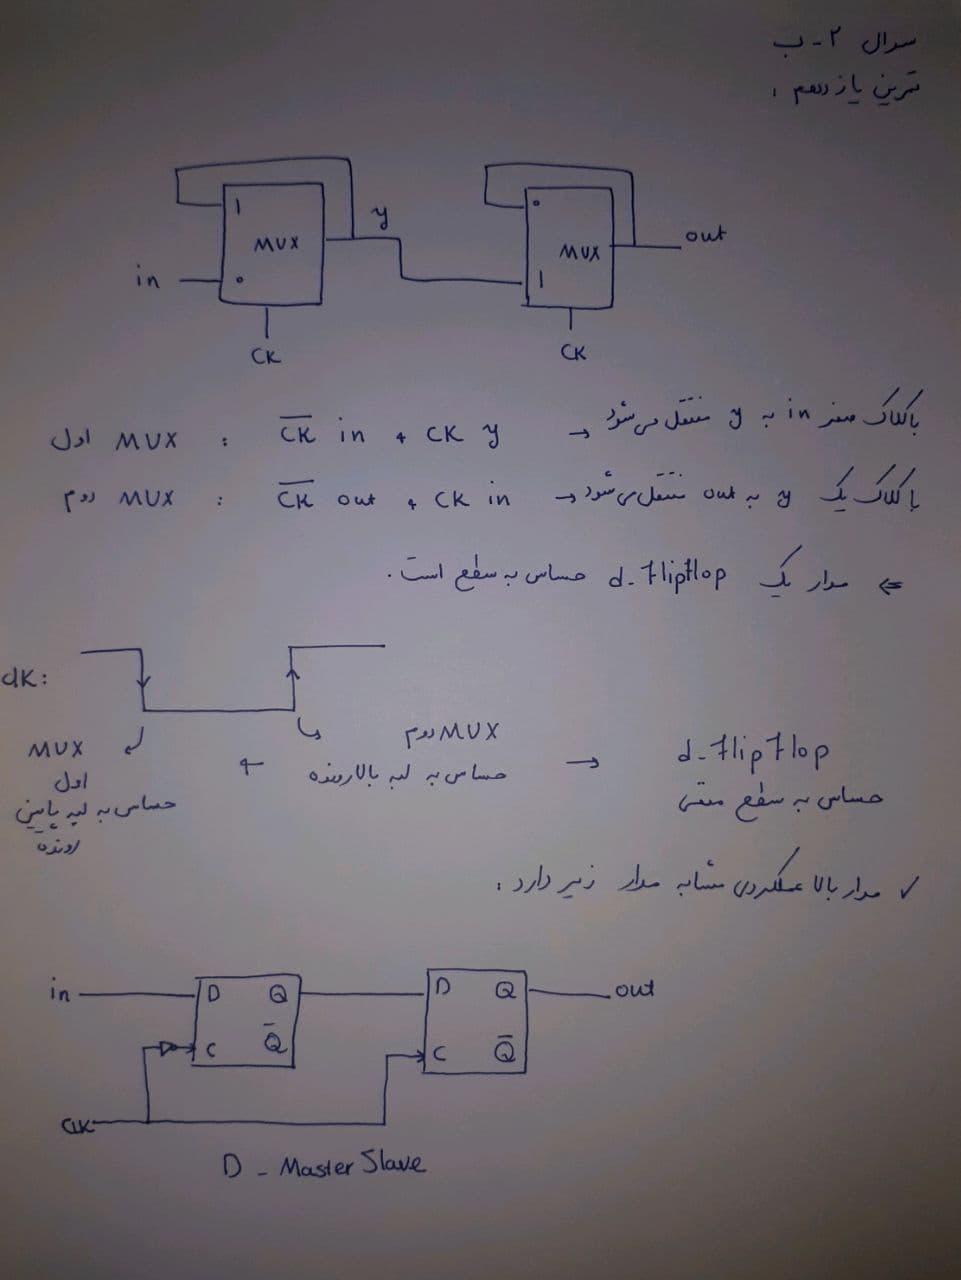 سوال ۲ - ب
تمرین یازدهم :
1 MUX 0
in
y
CK
0 MUX 1
out
CK
MUX اول : C̅K̅ in + CK y → با کلاک صفر in به y منتقل می‌شود
MUX دوم : C̅K̅ out + CK in → با کلاک یک y به out منتقل می‌شود
⇐ مدار یک d-flipflop حساس به سطح است.
clk:
MUX اول حساس به لبه پایین رونده + MUX دوم حساس به لبه بالارونده → d-flipflop حساس به سطح منفی
✓ مدار بالا عملکردی مشابه مدار زیر دارد :
in D Q D Q out
C Q̅ C Q̅
CLK
D - Master Slave